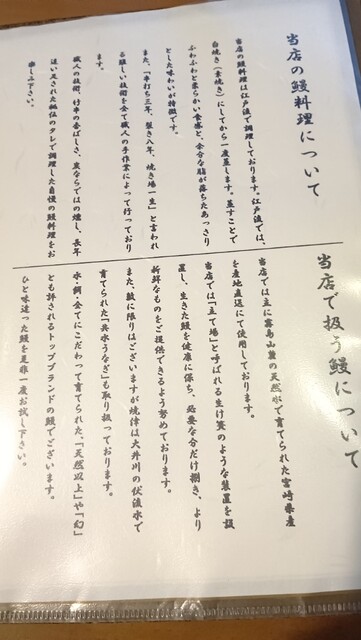 当店の鰻料理について
当店の鰻料理は江戸流で調理しております。江戸流では、
白焼き(素焼き)にしてから一度蒸します。蒸すことで
ふわふわと柔らかい食感と、余分な脂が落ちたあっさり
とした味わいが特徴です。
また、「串打ち三年、裂き八年、焼き場一生」と言われ
る難しい技術を全て職人の手作業によって行っており
ます。
職人の技術、竹串の香ばしさ、炭ならではの燻し、長年
継ぎ足された秘伝のタレで調理した自慢の鰻料理をお
楽しみ下さい。
当店で扱う鰻について
当店では主に霧島山麓の天然水で育てられた宮崎県産
を産地直送にて使用しております。
当店では「立て場」と呼ばれる生け簀のような装置を設
置し、生きた鰻を健康に保ち、必要な分だけ捌き、より
新鮮なものをご提供できるよう努めております。
また、数に限りはございますが焼津は大井川の伏流水で
育てられた「共水うなぎ」も取り扱っております。
水・餌・全てにこだわって育てられた、「天然以上」や「幻」
とも評されるトップブランドの鰻でございます。
ひと味違った鰻を是非一度お試し下さい。